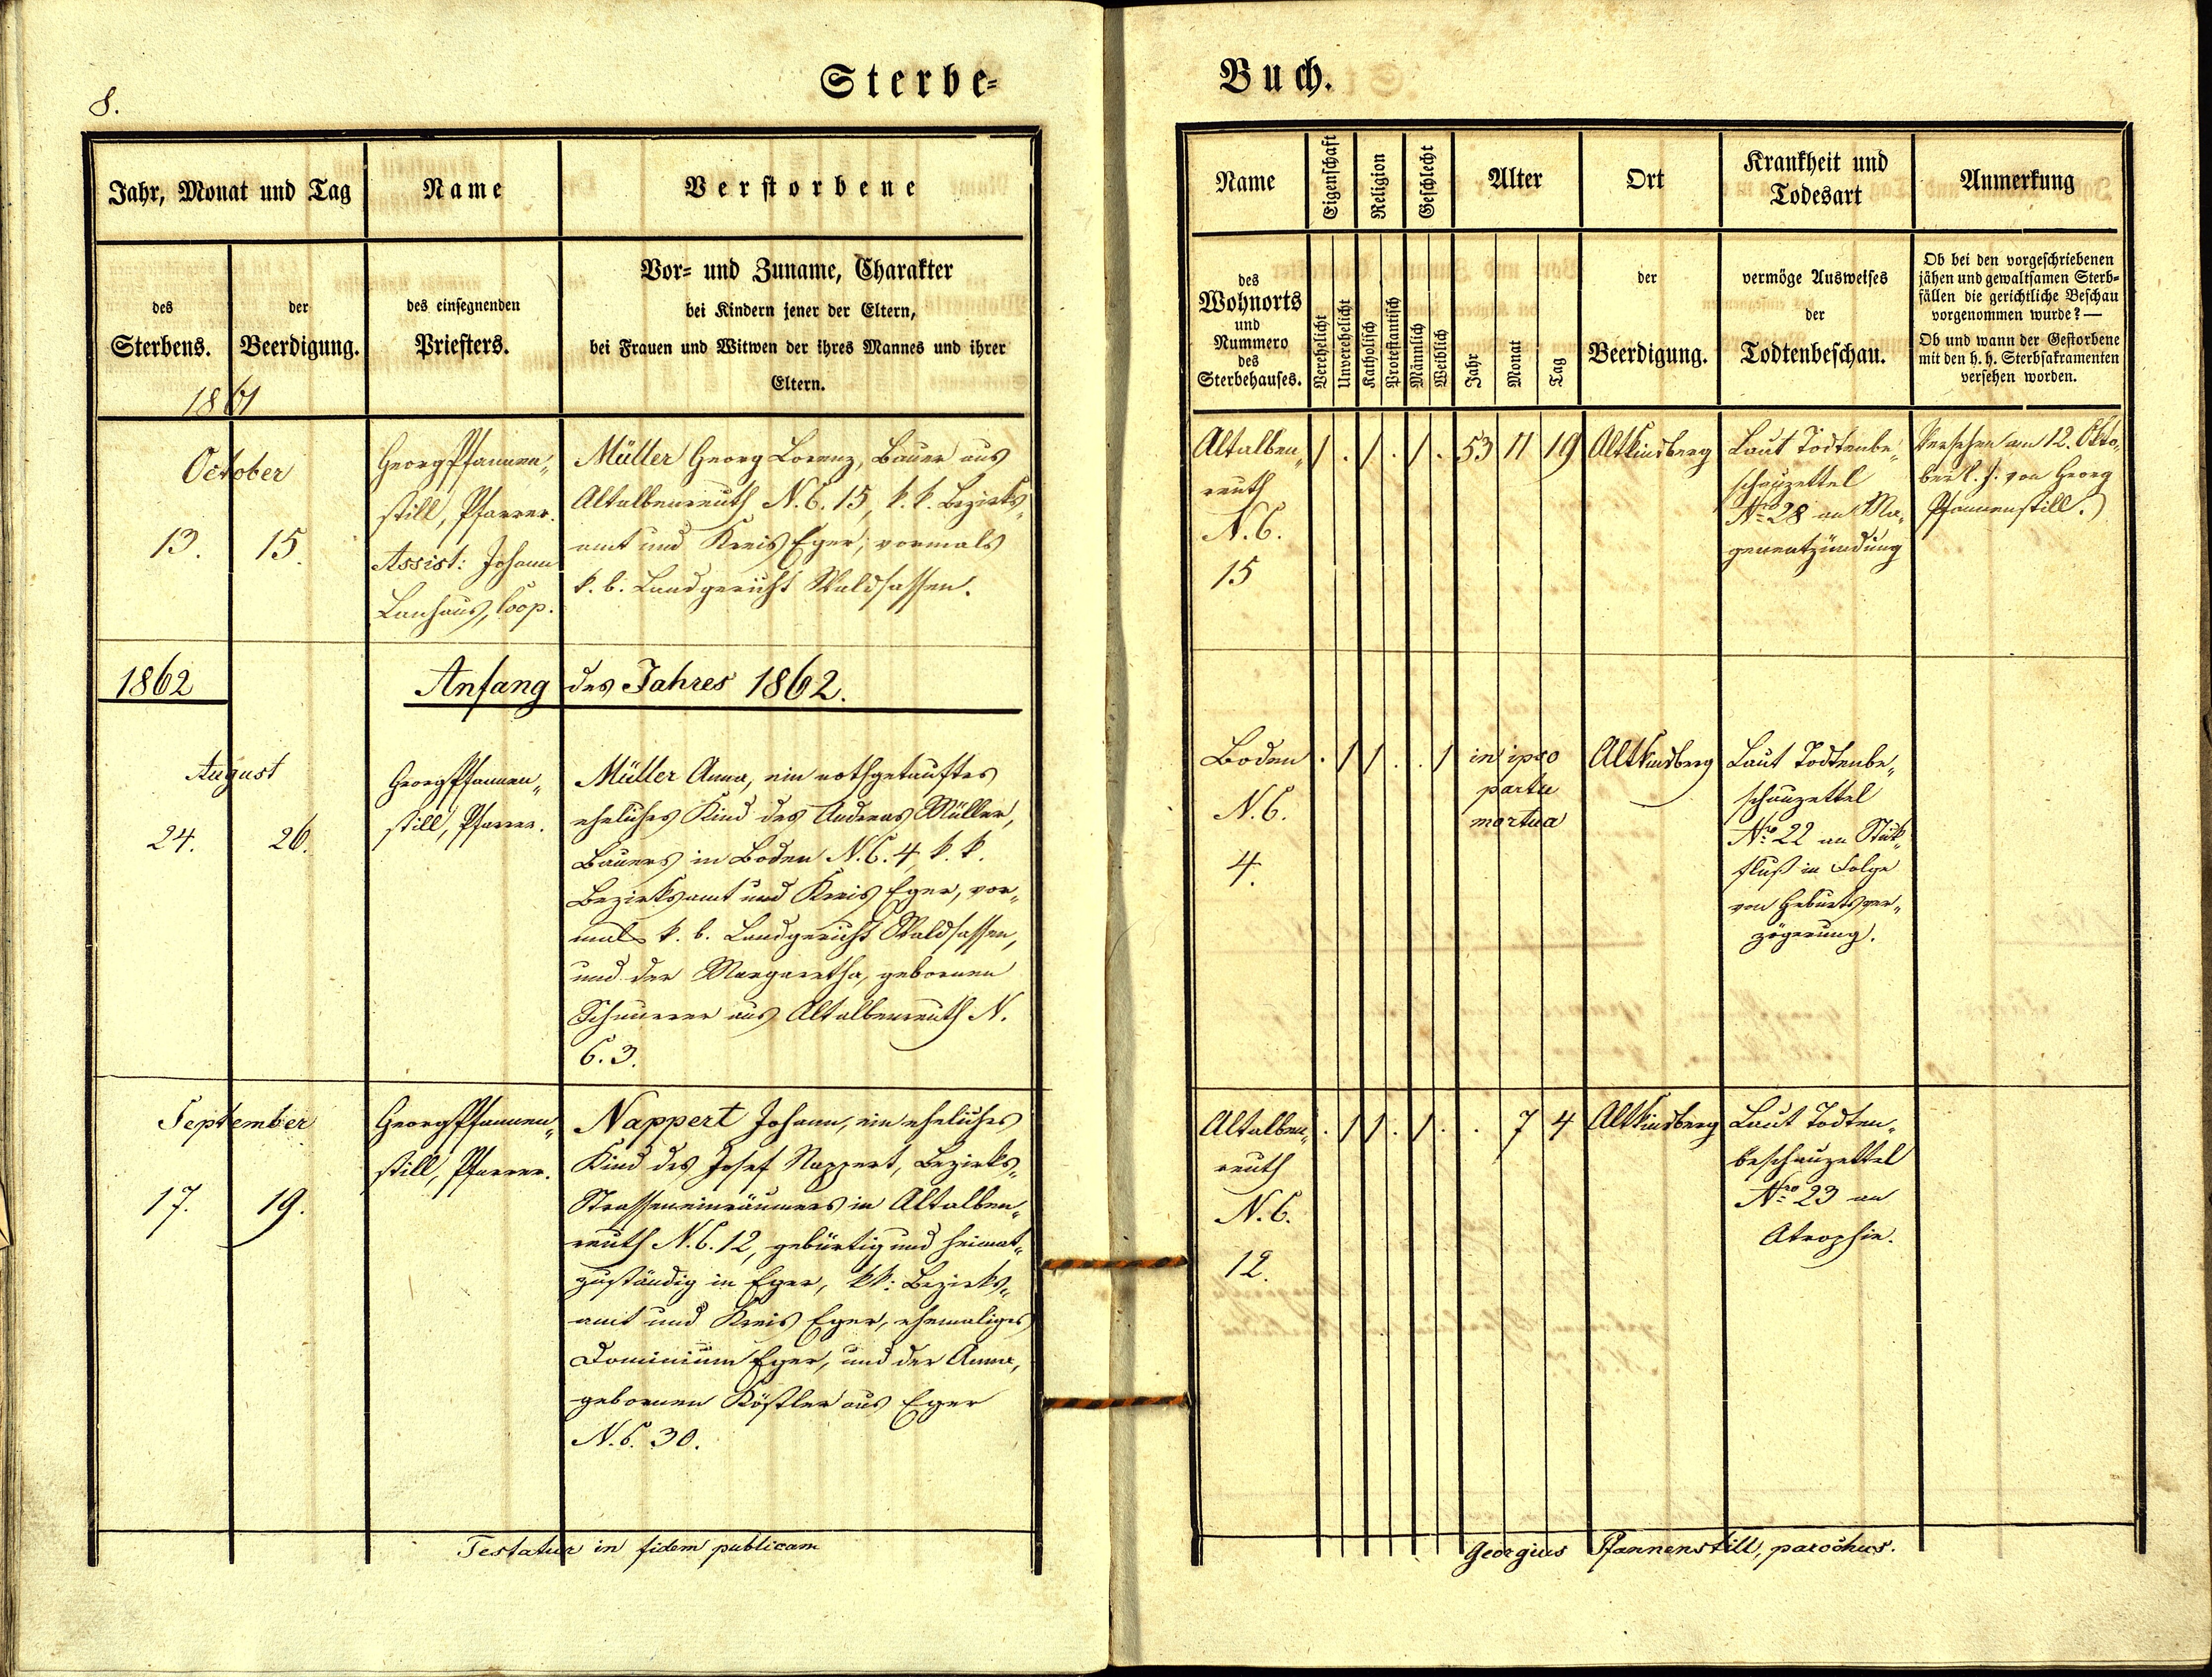 8.
Sterbe-
Jahr, Monat und Tag
Name
Verstorbene
des
Sterbens.
der
Beerdigung.
des einsegnenden
Priesters.
Vor- und Zuname, Charakter
bei Kindern jener der Eltern,
bei Frauen und Witwen der ihres Mannes und ihrer
Eltern.
1861
October
13. 15.
Georg Pfannen„
still, Pfarrer.
Assist: Johann
Lanhaus, Coop.
Müller Georg Lorenz, Bauer aus
Altalbenreuth N. C. 15, k. k. Bezirks„
amt und Kreis Eger, vormals
k. b. Landgericht Waldsassen.
1862
Anfang des Jahres 1862.
August
24. 26.
Georg Pfannen„
still, Pfarrer.
Müller Anna, ein nothgetauftes
eheliches Kind des Andreas Müller,
Bauers in Boden N. C. 4, k. k.
Bezirksamt und Kreis Eger, vor„
mals k. b. Landgericht Waldsassen,
und der Margaretha, gebornen
Schnurrer aus Altalbenreuth N.
C. 3.
September
17. 19.
Georg Pfannen„
still, Pfarrer.
Nappert Johann, ein eheliches
Kind des Josef Nappert, Bezirks„
Strasseneinräumers in Altalben„
reuth N. C. 12, gebürtig und heimat„
zuständig in Eger, kk: Bezirks„
amt und Kreis Eger, ehemaliges
Dominium Eger, und der Anna,
gebornen Köstler aus Eger
N. C. 30.
Testatur in fidem publicam
Buch.
Name
Eigenschaft
Religion
Geschlecht
Alter
Ort
Krankheit und
Todesart
Anmerkung
des
Wohnorts
und
Nummero
des
Sterbehauses.
Verehelicht
Unverehelicht
Katholisch
Protestantisch
Männlich
Weiblich
Jahr
Monat
Tag
der
Beerdigung.
vermöge Ausweises
der
Todtenbeschau.
Ob bei den vorgeschriebenen
jähen und gewaltsamen Sterb-
fällen die gerichtliche Beschau
vorgenommen wurde? —
Ob und wann der Gestorbene
mit den h. h. Sterbsakramenten
versehen worden.
Altalben„
reuth
N. C.
15
/ . / . / . 53 11 19
Altkinsberg
Laut Todtenbe„
schauzettel
Nro 28 an Ma„
genentzündung
Versehen am 12. Okto„
ber l. J. von Georg
Pfannenstill.)
Boden
N. C.
4.
. / / . . /
in ipso
partu
mortua
Altkinsberg
Laut Todtenbe„
schauzettel
Nro 22 an Stick„
fluß in Folge
von Geburtsver„
zögerung.
Altalben„
reuth
N. C.
12.
. / / . / . . 7 4
Altkinsberg
Laut Todten„
beschauzettel
Nro 23 an
Atrophie.
Georgius Pfannenstill, parochus.